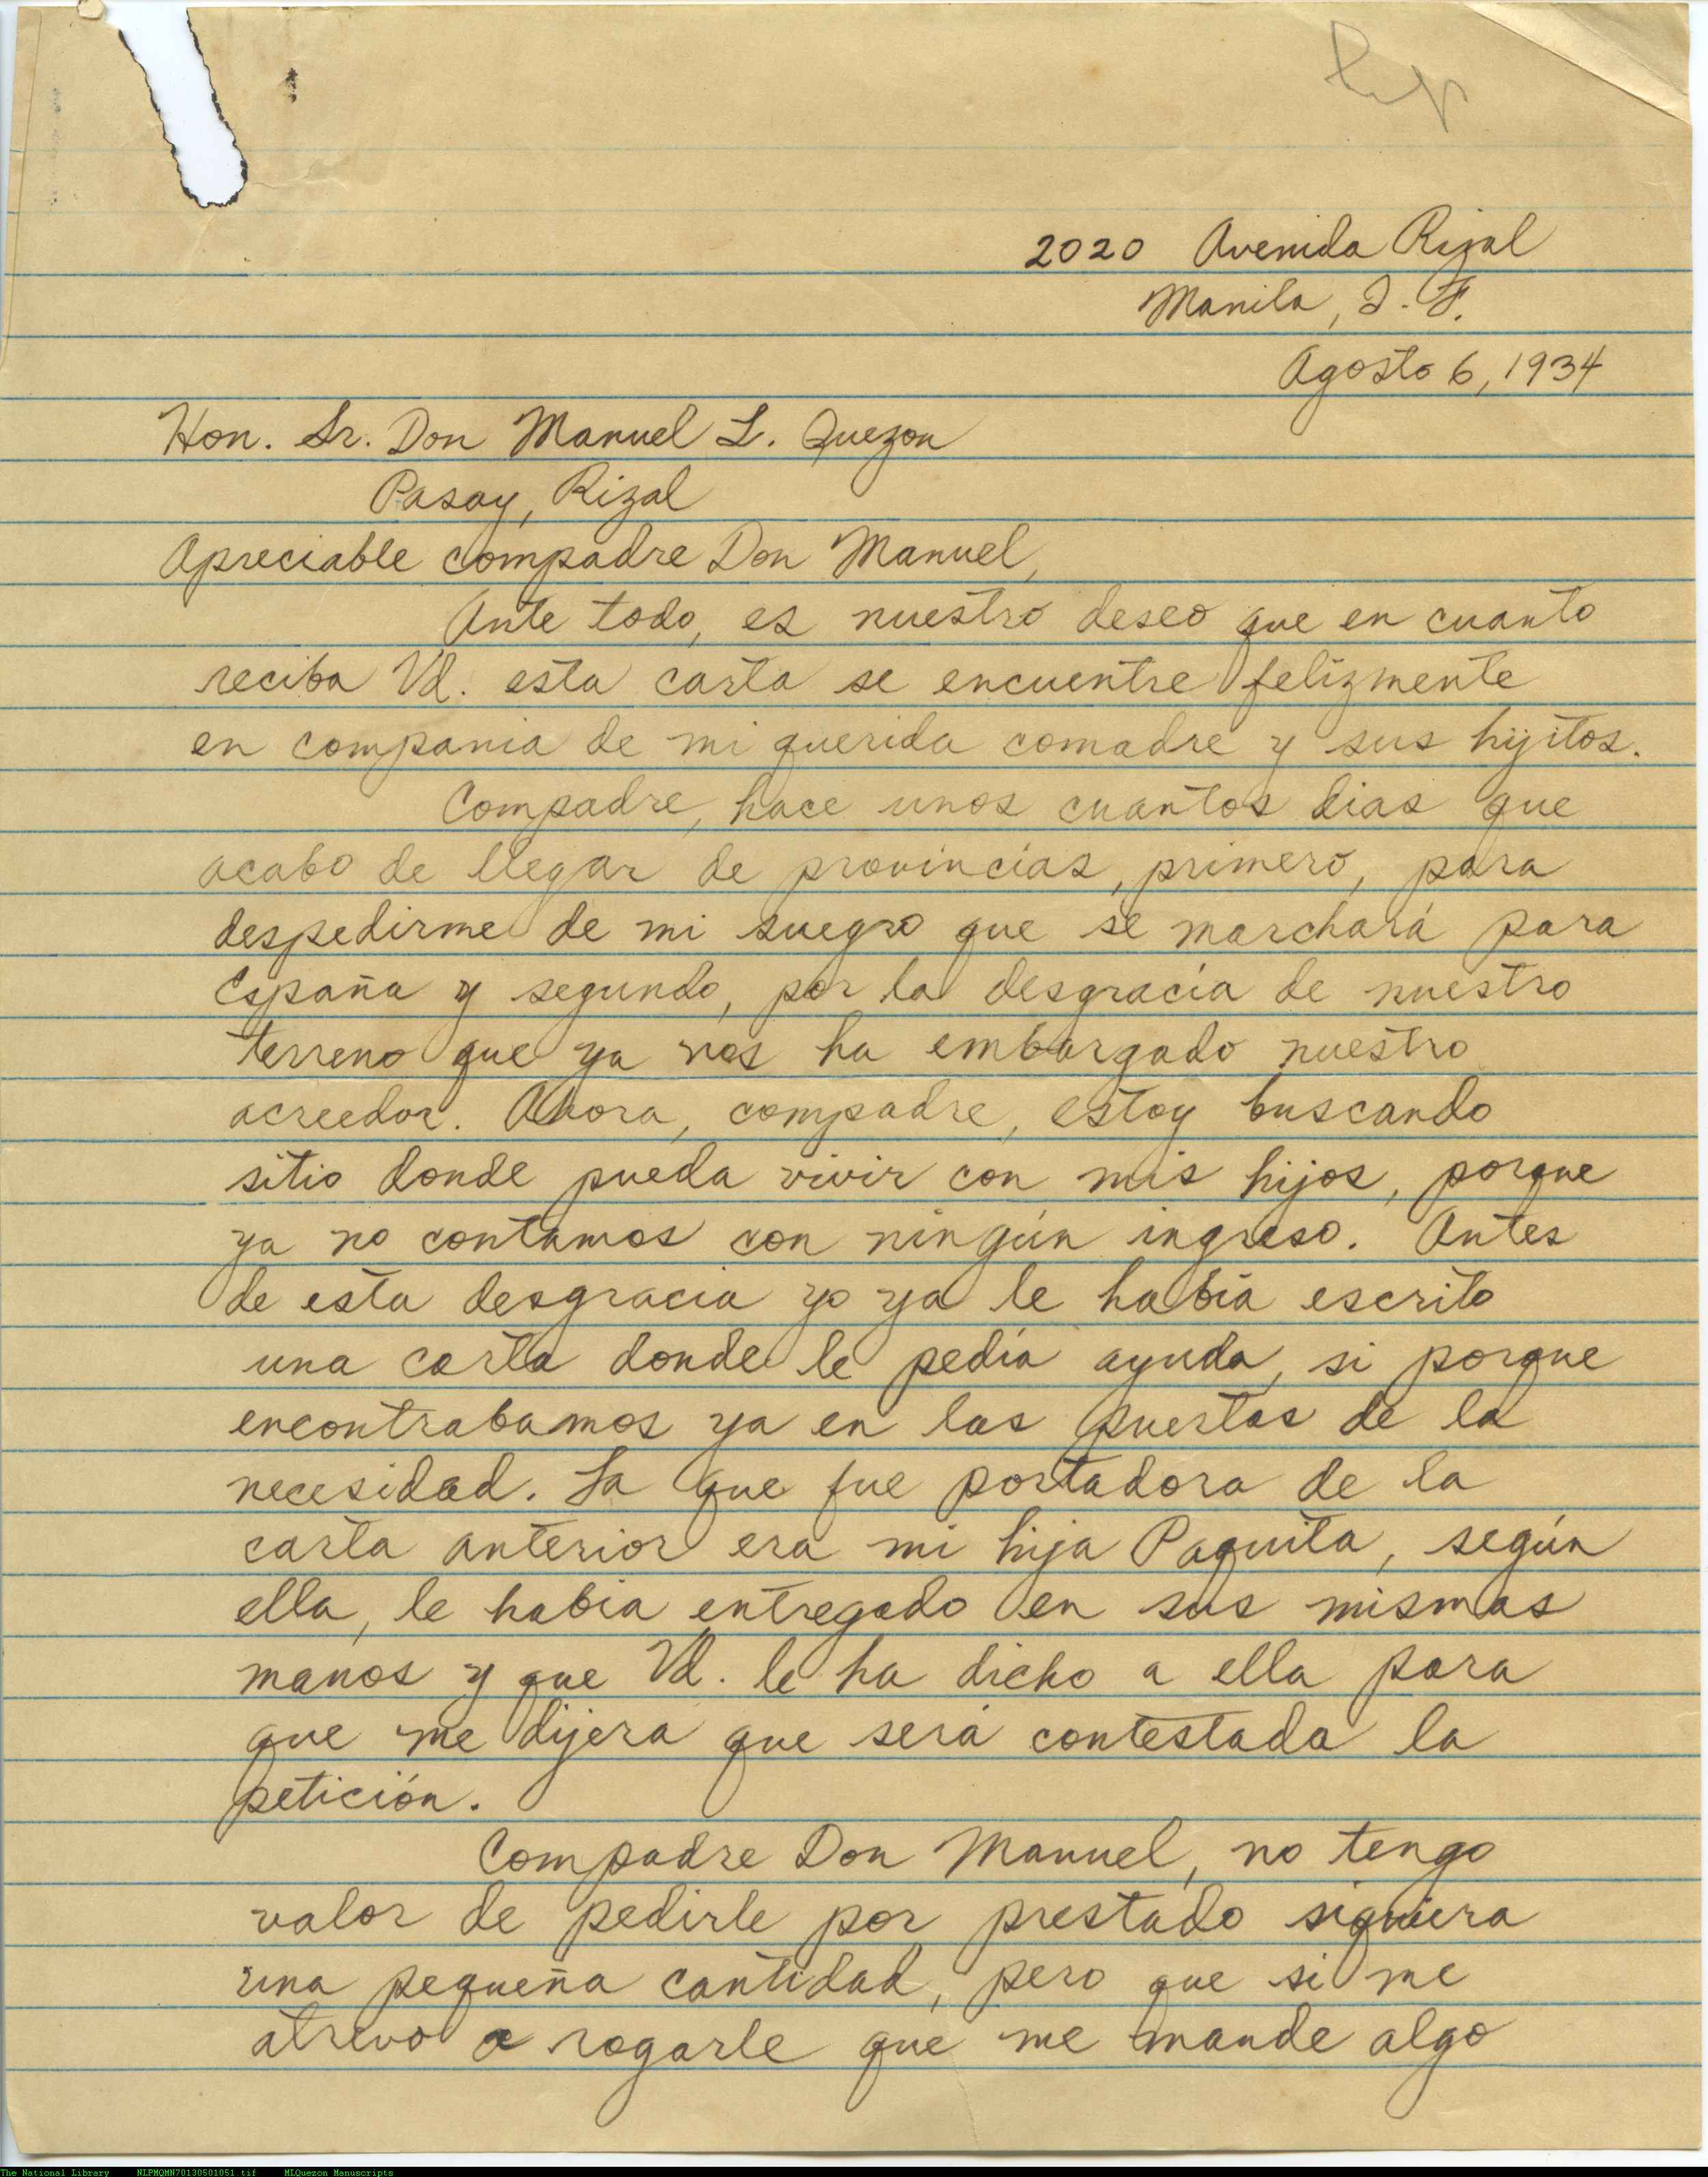 2020 Avenida Rizal
Manila, I. F.
Agosto 6, 1934
Hon. Sr. Don Manuel L. Quezon
Pasay, Rizal
Apreciable compadre Don Manuel,
Ante todo, es nuestro deseo que en cuanto
reciba Vd. esta carta se encuentre felizmente
en compania de mi querida comadre y sus hijitos.
Compadre, hace unos cuantos dias que
acabo de llegar de provincias, primero, para
despedirme de mi suegro que se marchará para
España y segundo, por la desgracia de nuestro
terreno que ya nos ha embargado nuestro
acreedor. Ahora, compadre, estoy buscando
sitio donde pueda vivir con mis hijos, porque
ya no contamos con ningún ingreso. Antes
de esta desgracia yo ya le había escrito
una carta donde le pedía ayuda, si porque
encontrabamos ya en las puertas de la
necesidad. La que fue portadora de la
carta anterior era mi hija Paquita, según
ella, le habia entregado en sus mismas
manos y que Vd. le ha dicho a ella para
que me dijera que será contestada la
petición.
Compadre Don Manuel, no tengo
valor de pedirle por prestado siquiera
una pequeña cantidad, pero que si me
atrevo a rogarle que me mande algo
The National Library NLPMQMN70130501051.tif MLQuezon Manuscripts